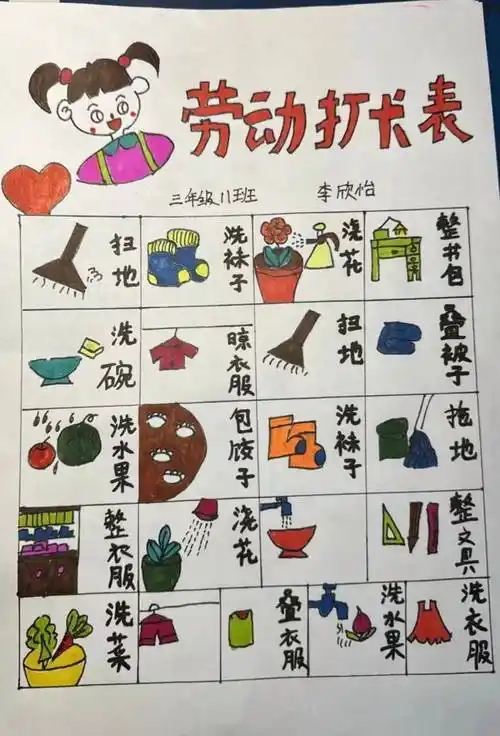 劳动打卡表
三年级八班 李欣怡
扫地 洗袜子 浇花 整书包
洗碗 晾衣服 扫地 叠被子
洗水果 包饺子 洗袜子 拖地
整衣服 浇花 整文具
洗菜 叠衣服 洗水果 洗衣服